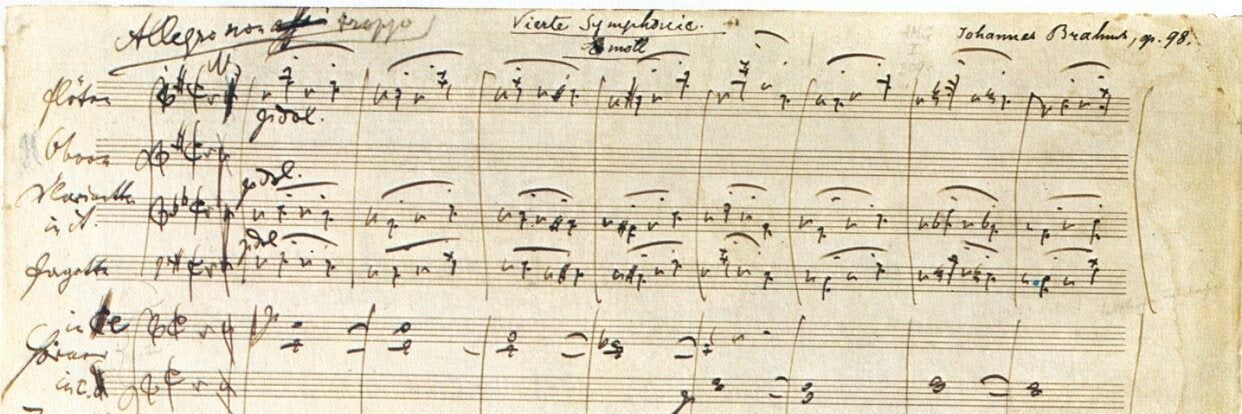 Allegro non assai troppo Vierte Symphonie. Johannes Brahms, op. 98.
E moll
Flöten
p dol.
Oboen
p dol.
Klarinetten
in A.
p dol
Fagotte
in E
Hörner
in C.
p